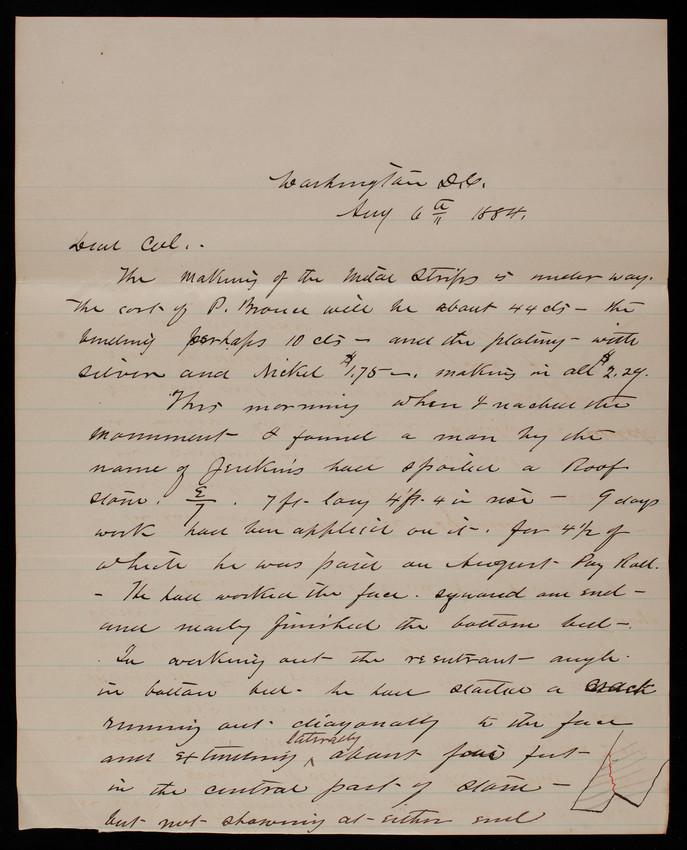 Washington D.C.
Aug 6th 1884.
Dear Col.-
The making of the metal strips is under way.
The cost of P. Bronze will be about 44 cts - the
bending perhaps 10 cts - and the plating - with
silver and Nickel $1.75 -. making in all $2.29.
This morning when I reached the
monument I found a man by the
name of Jenkins had spoiled a Roof
stone. E/7. 7 ft. long 4 ft. 4 in rise - 9 days
work had been applied on it. for 4 1/2 of
which he was paid on August Pay Roll.
- He had worked the face. squared one end -
and nearly finished the bottom bed -.
In working out the reentrant angle
in bottom bed - he had started a crack
running out diagonally to the face
and extending laterally about four feet
in the central part of stone -
but not showing at either end